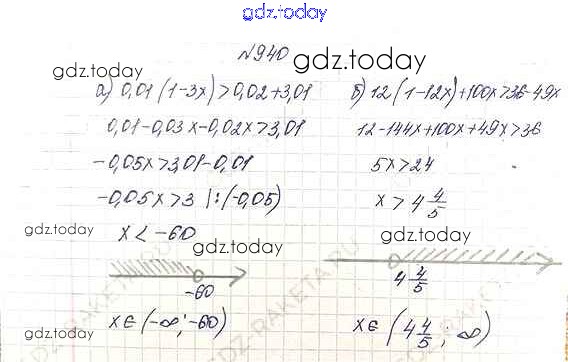 gdz.today
№940
gdz.today
gdz.today
а) 0,01(1-3x)>0,02+3,01
0,01-0,03x-0,02x>3,01
-0,05x>3,01-0,01
-0,05x>3 |:(-0,05)
x<-60
gdz.today
-60
x∈(-∞;-60)
gdz.today
б) 12(1-12x)+100x>36-49x
gdz.today
12-144x+100x+49x>36
5x>24
x>4 4/5
gdz.today
gdz.today
4 4/5
x∈(4 4/5; ∞)
gdz.today
GDZ-RAKETA.RU